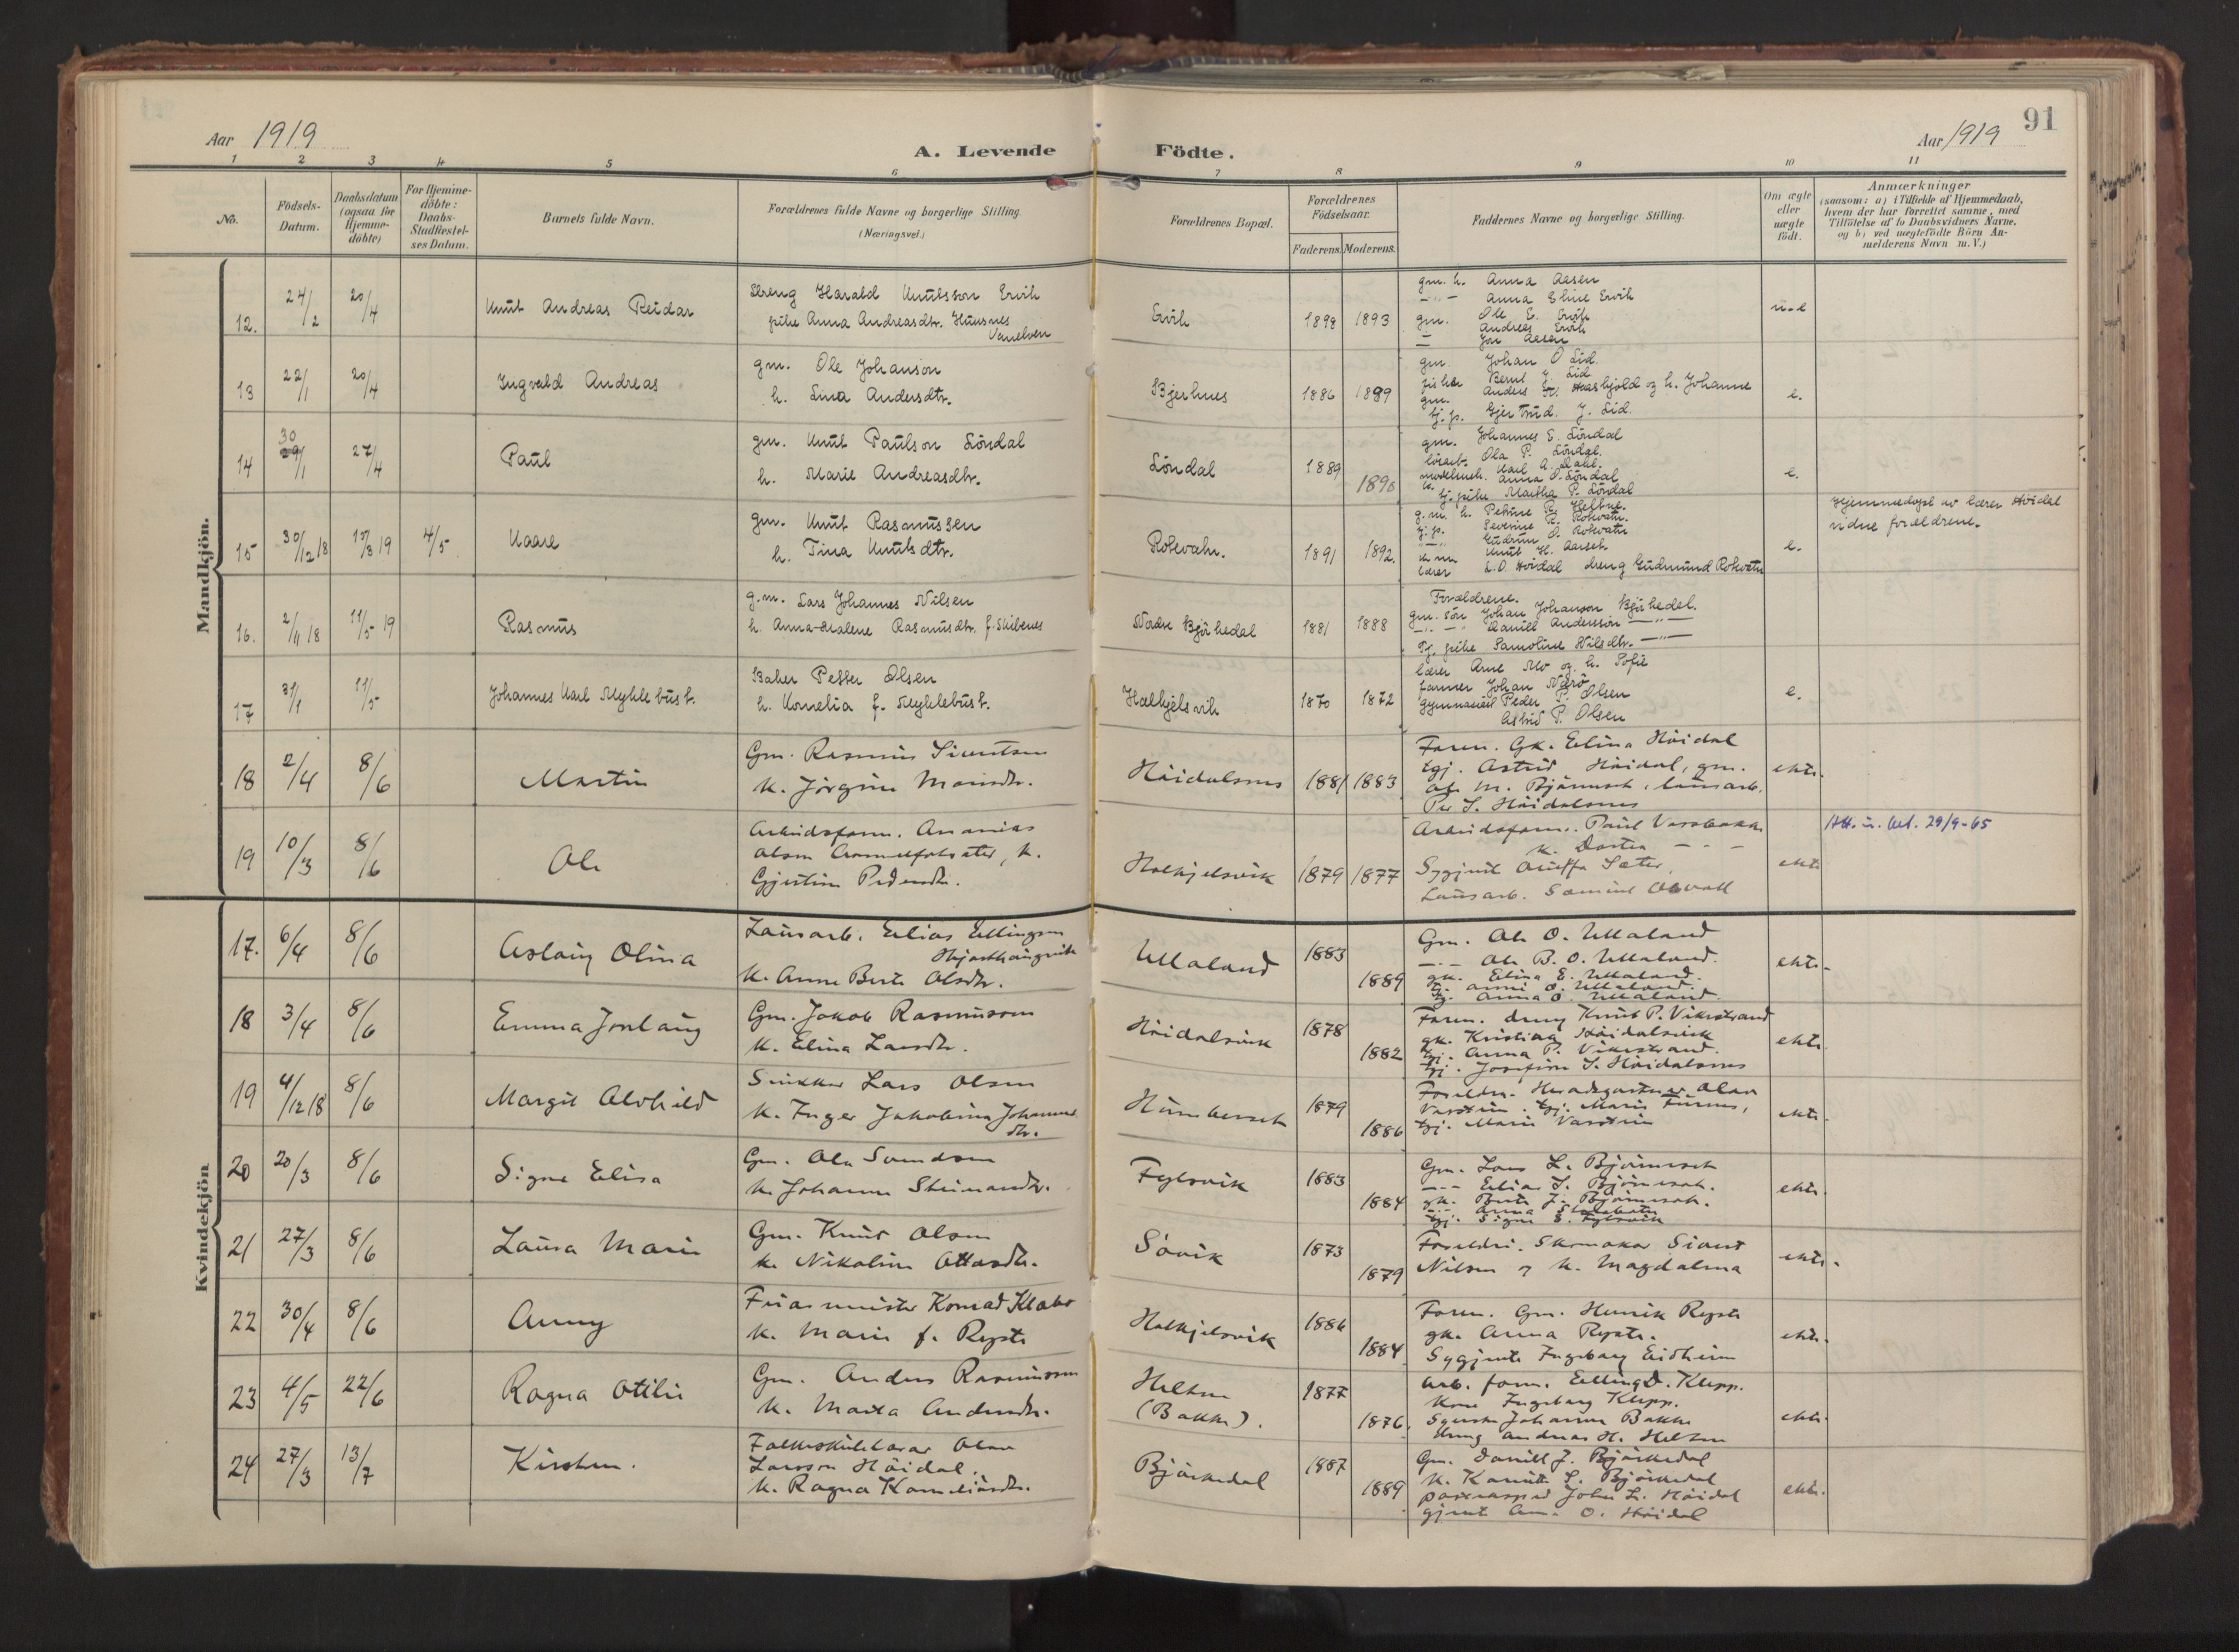 91
Aar 1919
A. Levende Födte.
Aar 1919
1 2 3 4 5 6 7 8 9 10 11
No.
Födsels-Datum.
Daabsdatum (ogsaa for Hjemme-döbte)
For Hjemme-döbte: Daabs-Stadfæstel-ses Datum.
Barnets fulde Navn.
Forældrenes fulde Navne og borgerlige Stilling. (Næringsvei.)
Forældrenes Bopæl.
Forældrenes Födselsaar.
Faderens. Moderens.
Faddernes Navne og borgerlige Stilling.
Om ægte eller uægte födt.
Anmærkninger
(saasom: a) i Tilfælde af Hjemmedaab,
hvem der har forrettet samme, med
Tilföielse af to Daabsvidners Navne,
og b) ved uægtefödte Börn An-
melderens Navn m. V.)
Mandkjön.
12. 24/2 20/4 Knut Andreas Reidar
Dreng Harald Knutsson Ervik
pike Anna Andreasdtr. Husnes
Vanelven
Ervik 1898 1893
gm. h. Anna Aasen
Anna Eline Ervik
gm. Ole E. Ervik
Andreas Ervik
Jon Aasen
13 22/1 20/4 Ingvald Andreas
gm. Ole Johanson
h. Lina Andersdtr.
Bjerknes 1886 1889
gm. Johan O Lid.
fisker Bernt J. Lid
gm. Anders og h. Johanne
tj. p. Gjertrud. J. Lid.
e.
14 30 29/1 27/4 Paul
gm. Knut Paulson Löndal
h. Marie Andreasdtr.
Löndal 1889 1890
gm. Johannes E. Löndal
lösarb. Ola P. Löndal.
Karl A. Dahl.
h. Anna O. Löndal
tj. pike Martha P. Löndal
e.
15 30/12 18 15/3 19 4/5 Kaare
gm. Knut Rasmussen
h. Tina Knutsdtr.
Rotevatn. 1891 1892.
g.m. h. Petrine R. Heltne.
tj. p. Severine R. Rotevatn.
Gudrun O. Rotevatn
Knut H. Aarsek
lærer L. O. Höidal dreng Gudmund Rotevatn
e.
Hjemmedöpt av lærer Höidal
vidne forældrene.
16. 2/11 18 11/5 19 Rasmus
g.m. Lars Johannes Nilsen
h. Anna-Malene Rasmusdtr. f. Skibenes
Nordre Björkedal 1881 1888
Forældrene.
gm. sön Johan Johanson Björkedal.
Daniel Andersson
Tj. pike Samoline Nilsdtr.
17 31/1 11/5 Johannes Karl Myklebust.
Baker Petter Olsen
h. Kornelia f. Myklebust.
Halkjelsvik 1870 1872
lærer Arne Mo og h. Sofie
farmer Johan Nærö
gymnasiast Peder P. Olsen
Astrid P. Olsen
e.
18 2/4 8/6 Martin
Gm. Rasmus Sivertsen
K. Jörgine Monsdtr.
Höidalsnes 1881 1883
Faren. Gk. Elina Höidal
tgj. Astrid Höidal, gm.
Ole M. Björneset, lausarb.
Per S. Höidalsnes
ekte.
19 10/3 8/6 Ole
Arbeidsform. Ananias
Olsen, K.
Gjertine Pedersdtr.
Halkjelsvik 1879 1877
Arbeidsform. Paul Vassbakk
K. Dortea
Sygjent Sæter,
Lausarb. Samuel Aasvoll
ekte
29/9-65
Kvindekjön.
17. 6/4 8/6 Aslaug Olina
Lausarb. Elias Ellingsen
K. Anne Berte Olsdtr.
Ulaland 1883 1889
Gm. Ole O. Ulaland
Ole B. O. Ulaland.
gk. Elina E. Ulaland.
tj. Anna O. Ulaland.
tj. Anna O. Ulaland.
ekte.
18 3/4 8/6 Emma Jonlaug
Gm. Jakob Rasmusson
K. Elina Larsdtr.
Höidalsvik 1878 1882
Faren. dreng Knut P. Vikestrand
gk. Kristiane Höidalsvik
tgj. Anna P. Vikestrand.
tgj. Josefine S. Höidalsnes
ekte.
19 4/12 18 8/6 Margit Alvhild
Snikkar Lars Olsen
K. Inger Jakobine Johannes
dtr.
Humberset 1879 1886
Foreldr. Heradsgartnar Olav
tgj. Marie Furnes,
tgj. Marie
ekte.
20 20/3 8/6 Signe Elisa
Gm. Ole Samdsen
K. Johanne Steinarsdtr.
Fylsvik 1883 1884
Gm. Lars L. Björneset
Elias S. Björneset.
gk. Berte J. Björneset.
Anna
tgj. Signe S. Fylsvik
ekte.
21 27/3 8/6 Laura Marie
Gm. Knut Olsen
K. Nikoline Ottarsdtr.
Sövik 1873 1879
Foreldri. Skomakar Sivert
Nilsen og K. Magdalena
ekte.
22 30/4 8/6 Anny
Konrad Klabo
K. Marie f. Ryste
Halkjelsvik 1886 1884
Faren. Gm. Henrik Ryste
gk. Anna Ryste.
Sygjente Ingeborg Eidheim
ekte.
23 4/5 22/6 Ragna Otilie
Gm. Anders Rasmussen
K. Marta Andersdtr.
Heltne
(Bakke).
1877 1876.
Arb. form. Elling D. Klepp.
Kone Ingeborg Klepp.
Johanna Bakke
dreng Andreas H. Heltne
ekte.
24 27/3 13/7 Kirsten.
Folkeskulelærar Olav
Larsson Höidal,
K. Ragna Korneliusdtr.
Björkedal 1887 1889
Gm. Daniel J. Björkedal
K. Karnite L. Björkedal
John L. Höidal
gjente O. Höidal
ekte.